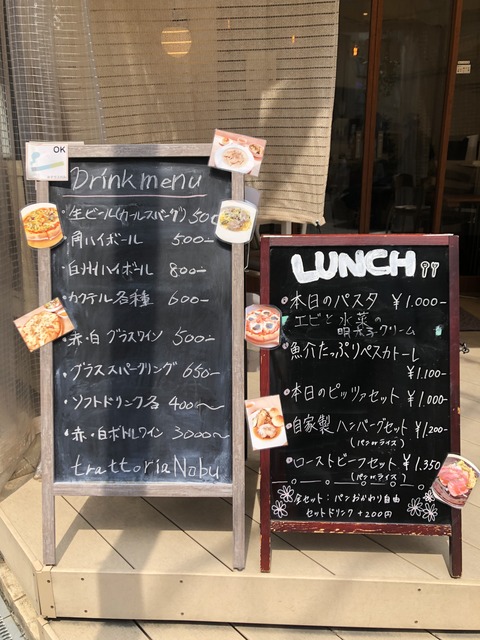 OK
Drink menu
・生ビール(カールスバーグ) 500
角ハイボール 500-
・白州ハイボール 800-
・カクテル各種 600-
・赤・白 グラスワイン 500-
・グラススパークリング 650-
・ソフトドリンク各 400〜
・赤・白ボトルワイン 3000〜
trattoria Nobu
LUNCH
・本日のパスタ ¥1.000-
エビと水菜の
明太子クリーム
・魚介たっぷりペスカトーレ
¥1.100-
・本日のピッツァセット ¥1,000-
・自家製ハンバーグセット ¥1,200-
(パンorライス)
・ローストビーフセット ¥1.350
(パンorライス)
全セット：パンおかわり自由
セットドリンク +200円